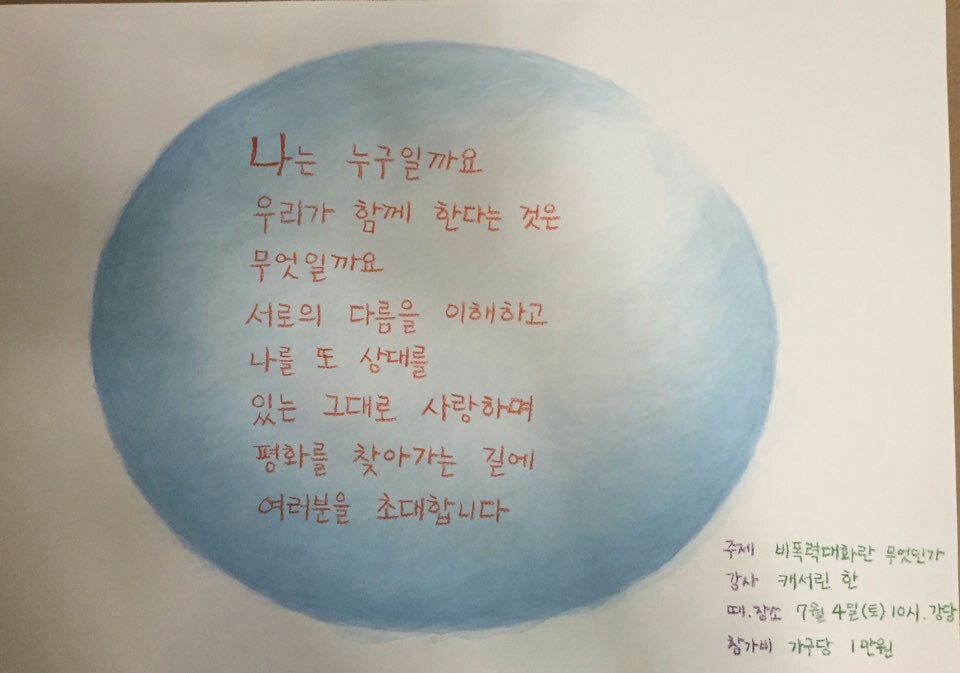 나는 누구일까요
우리가 함께 한다는 것은
무엇일까요
서로의 다름을 이해하고
나를 또 상대를
있는 그대로 사랑하며
평화를 찾아가는 길에
여러분을 초대합니다
주제 비폭력대화란 무엇인가
강사 캐서린 한
때.장소 7월 4일(토) 10시.강당
참가비 가구당 1만원